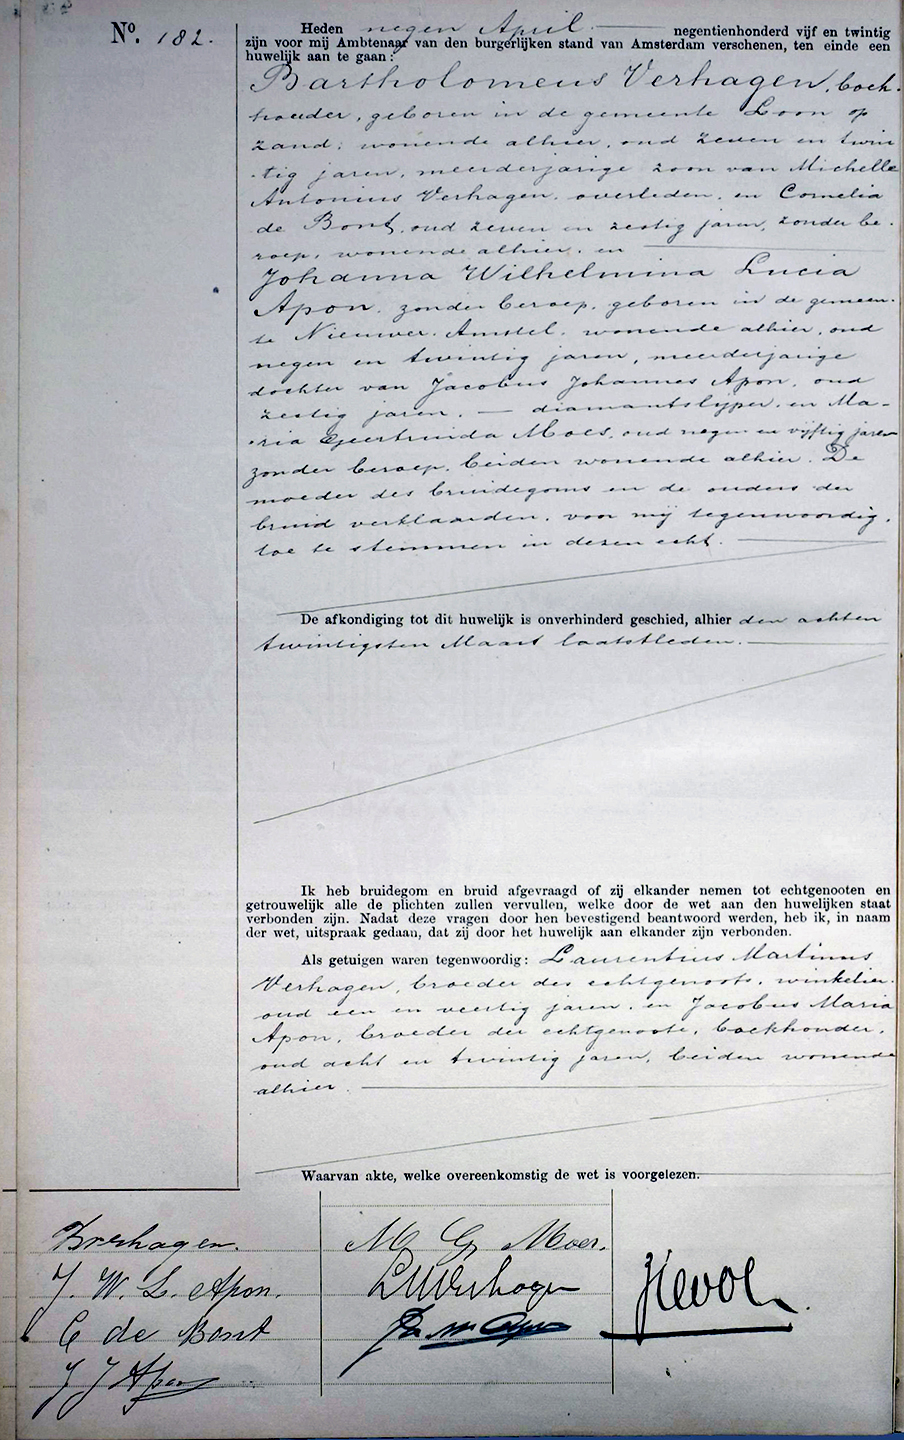 No. 182.
Heden negen April negentienhonderd vijf en twintig
zijn voor mij Ambtenaar van den burgerlijken stand van Amsterdam verschenen, ten einde een
huwelijk aan te gaan:
Bartholomeus Verhagen, boek-
houder, geboren in de gemeente Loon op
zand; wonende alhier, oud zeven en twin
tig jaren, meerderjarige zoon van Michelle
Antonius Verhagen, overleden, en Cornelia
de Bont, oud zeven en zestig jaren, zonder be-
roep, wonende alhier, en
Johanna Wilhelmina Lucia
Apon, zonder beroep, geboren in de gemeen-
te Nieuwer-Amstel, wonende alhier, oud
negen en twintig jaren, meerderjarige
dochter van Jacobus Johannes Apon, oud
zestig jaren, — diamantslijper, en Ma-
ria Geertruida Moes, oud negen en vijftig jaren
zonder beroep, beiden wonende alhier. De
moeder des bruidegoms en de ouders der
bruid verklaarden, voor mij tegenwoordig,
toe te stemmen in dezen echt.
De afkondiging tot dit huwelijk is onverhinderd geschied, alhier den achten
twintigsten Maart laatstleden.
Ik heb bruidegom en bruid afgevraagd of zij elkander nemen tot echtgenooten en
getrouwelijk alle de plichten zullen vervullen, welke door de wet aan den huwelijken staat
verbonden zijn. Nadat deze vragen door hen bevestigend beantwoord werden, heb ik, in naam
der wet, uitspraak gedaan, dat zij door het huwelijk aan elkander zijn verbonden.
Als getuigen waren tegenwoordig: Laurentius Martinus
Verhagen, broeder des echtgenoots, winkelier,
oud een en veertig jaren, en Jacobus Maria
Apon, broeder der echtgenoote, boekhouder,
oud acht en twintig jaren, beiden wonende
alhier.
Waarvan akte, welke overeenkomstig de wet is voorgelezen.
B Verhagen.
J. W. L. Apon.
C de Bont
J J Apon
M G Moes.
L M Verhagen
Ja M Apon